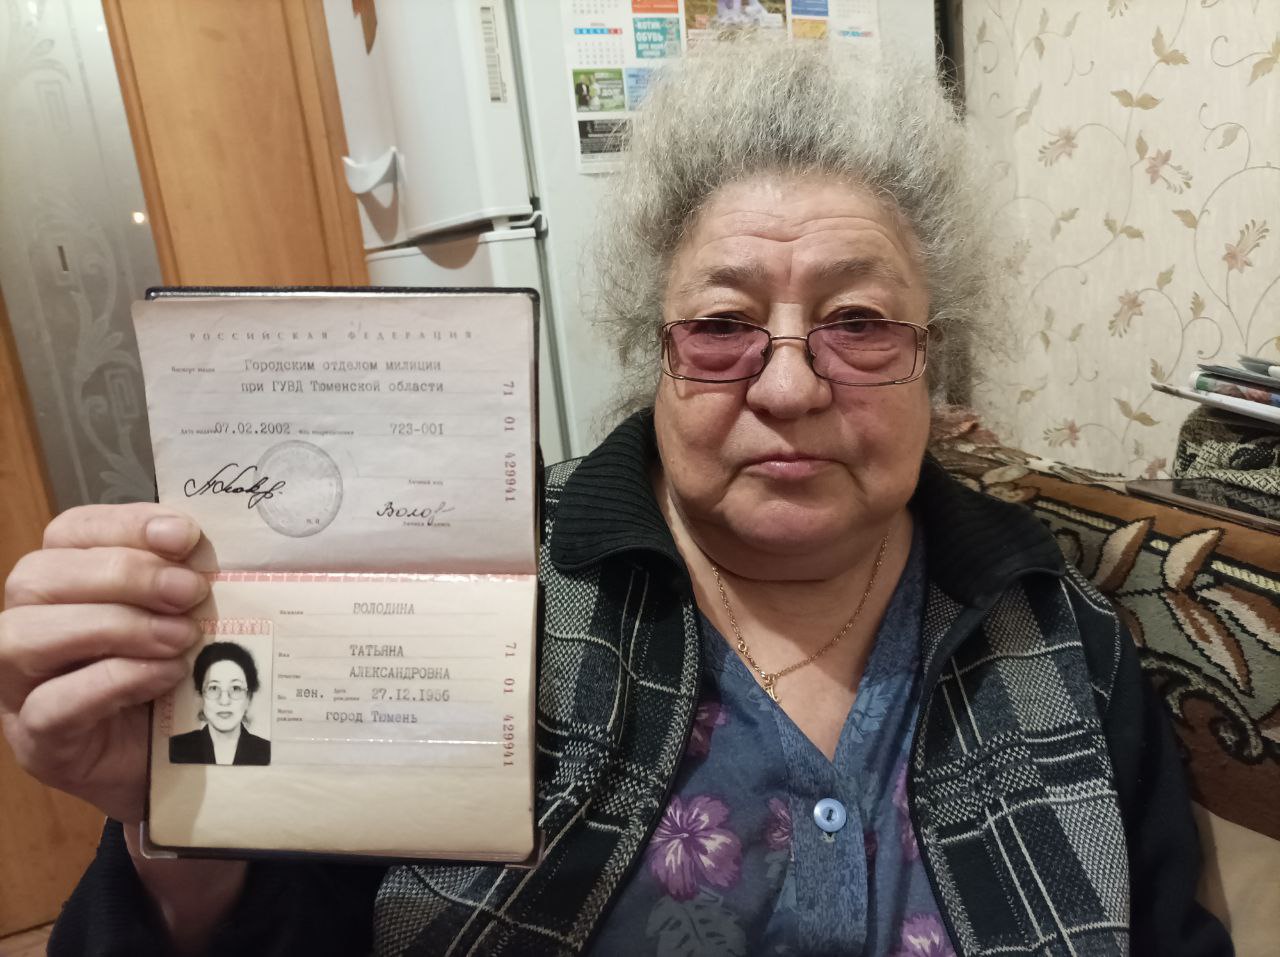 РОССИЙСКАЯ ФЕДЕРАЦИЯ
Паспорт выдан Городским отделом милиции
при ГУВД Тюменской области
Дата выдачи 07.02.2002 Код подразделения 723-001
71 01 429941
Личный код
М.П.
Личная подпись
Фамилия ВОЛОДИНА
Имя ТАТЬЯНА
Отчество АЛЕКСАНДРОВНА
Пол жен. Дата рождения 27.12.1956
Место рождения город Тюмень
71 01 429941
ОБУВЬ